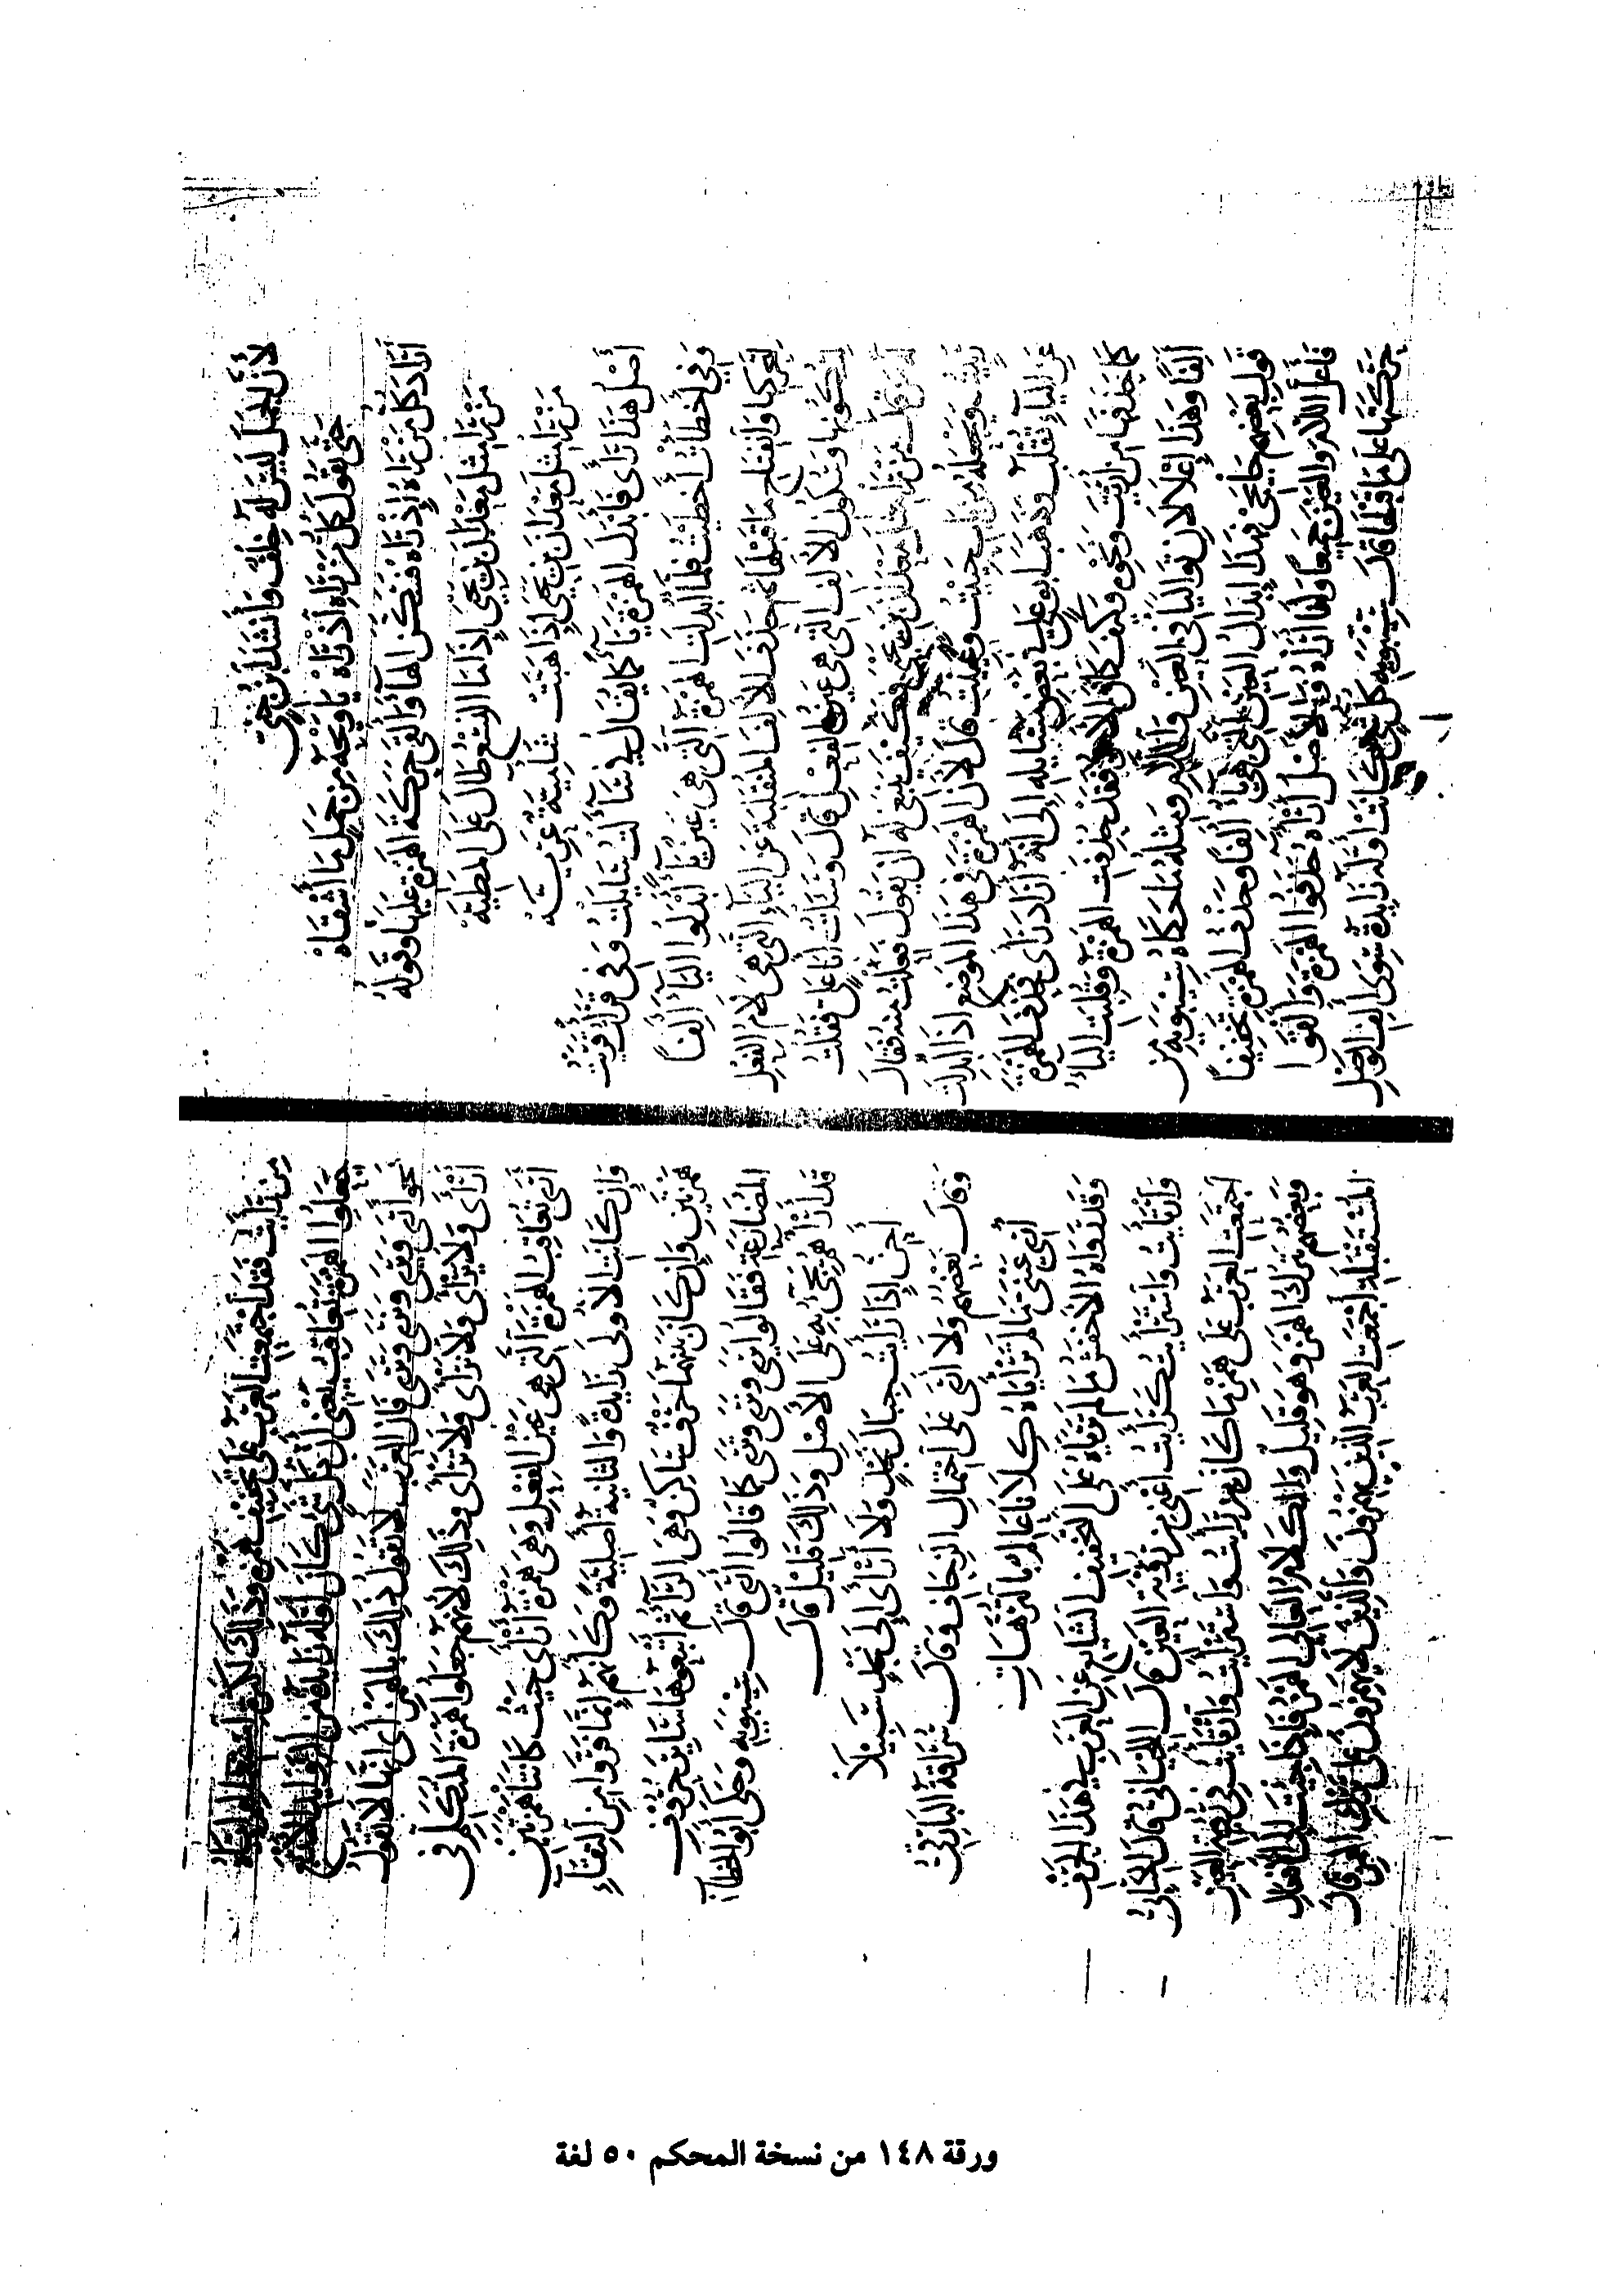 لأن الجمل ليس له خلف وأنشد ابن جني
حتى يقول كل من راه إذ راه يا ويحه من جمل ما أشقاه
أراد كل من رآه إذ رآه فسكن الهاء وألقى حركة الهمزة عليها وقوله
من را مثل معدان بن يحيى إذا ما النسع طال على المطية
من را مثل معدان بن يحيى إذا هبت شآمية عرية
أصل هذا رأى فأبدل الهمزة ياء كما يقال في سآلت سايلت وفي قرأت قريت
وفي أخطأت أخطيت فلما أبدلت الهمزة التي هي عين ياء أبدلوا الياء ألفا
لتحركها وانفتاح ما قبلها ثم حذف الألف المنقلبة عن الياء التي هي لام الفعل
لسكونها وسكون الألف التي هي عين الفعل قال وسألت أبا علي فقلت
له من قال من را مثل معدان بن يحيى فكيف ينبغي له أن يقول فعلت منه فقال
رييت ويجعله من باب حييت وعييت قال لأن الهمزة في هذا الموضع إذا أبدلت
عن الياء تقلب وذهب أبو علي في بعض مسائله إلى أنه أراد رأى فحذف الهمزة
كما حذفها من أريت ونحوه وكيف كان الأمر فقد حذفت الهمزة وقلبت الياء
ألفا وهذا إعلالان تواليا في العين واللام ومثله ما حكاه سيبويه من
قول بعضهم جا يجي فهذا إبدال العين التي هي ياء ألفا وحذف الهمزة تخفيفا
فأعل اللام والعين جميعا وأنا أرأه والأصل أرآه حذفوا الهمزة وألقوا
حركتها على ما قبلها قال سيبويه كل شيء كانت أوله زائدة سوى ألف الوصل
من رأيت فقد اجتمعت العرب على تخفيف همزه وذلك لكثرة استعمالهم إياه
جعلوا الهمزة تعاقب يعني أن كل شيء كان أوله زائدا من الزوائد الأربع
نحو أرى ويرى ونرى وترى فإن العرب لا تقول ذلك بالهمز أي أنها لا تقول
أرأى ولا يرأى ولا نرأى ولا ترأى وذلك لأنهم جعلوا همزة المتكلم في
أرى تعاقب الهمزة التي هي عين الفعل وهي همزة أرأى حيث كانتا همزتين
وإن كانت الأولى زايدة والثانية أصلية وكأنهم إنما فروا من التقاء
همزتين وإن كان بينهما حرف ساكن وهي الراء ثم أتبعوها سائر حروف
المضارعة فقالوا يرى ونرى وترى كما قالوا أرى قال سيبويه وحكى أبو الخطاب
قد أرأهم يجيء به على الأصل وذلك قليل قال
أحن إذا رأيت جبال نجد ولا أرأى إلى نجد سبيلا
وقال بعضهم ولا أرى على احتمال الزحاف وقال سراقة البارقي
أري عيني ما لم ترأياه كلانا عالم بالترهات
وقد رواه الأخفش ما لم ترياه على التخفيف الشايع عن العرب في هذا الحرف
وارتأيت واسترأيت كرأيت أعني من رؤية العين قال اللحياني قال الكسائي
اجتمعت العرب على همز ما كان من رأيت واسترأيت وارتأيت في رؤية العين
وبعضهم يترك الهمز وهو قليل والكلام العالي الهمز فإذا جئت إلى الأفعال
المستقبلة أجمعت العرب الذين يهمزون والذين لا يهمزون على ترك الهمز قال
ورقة ١٤٨ من نسخة المحكم ٥٠ لغة